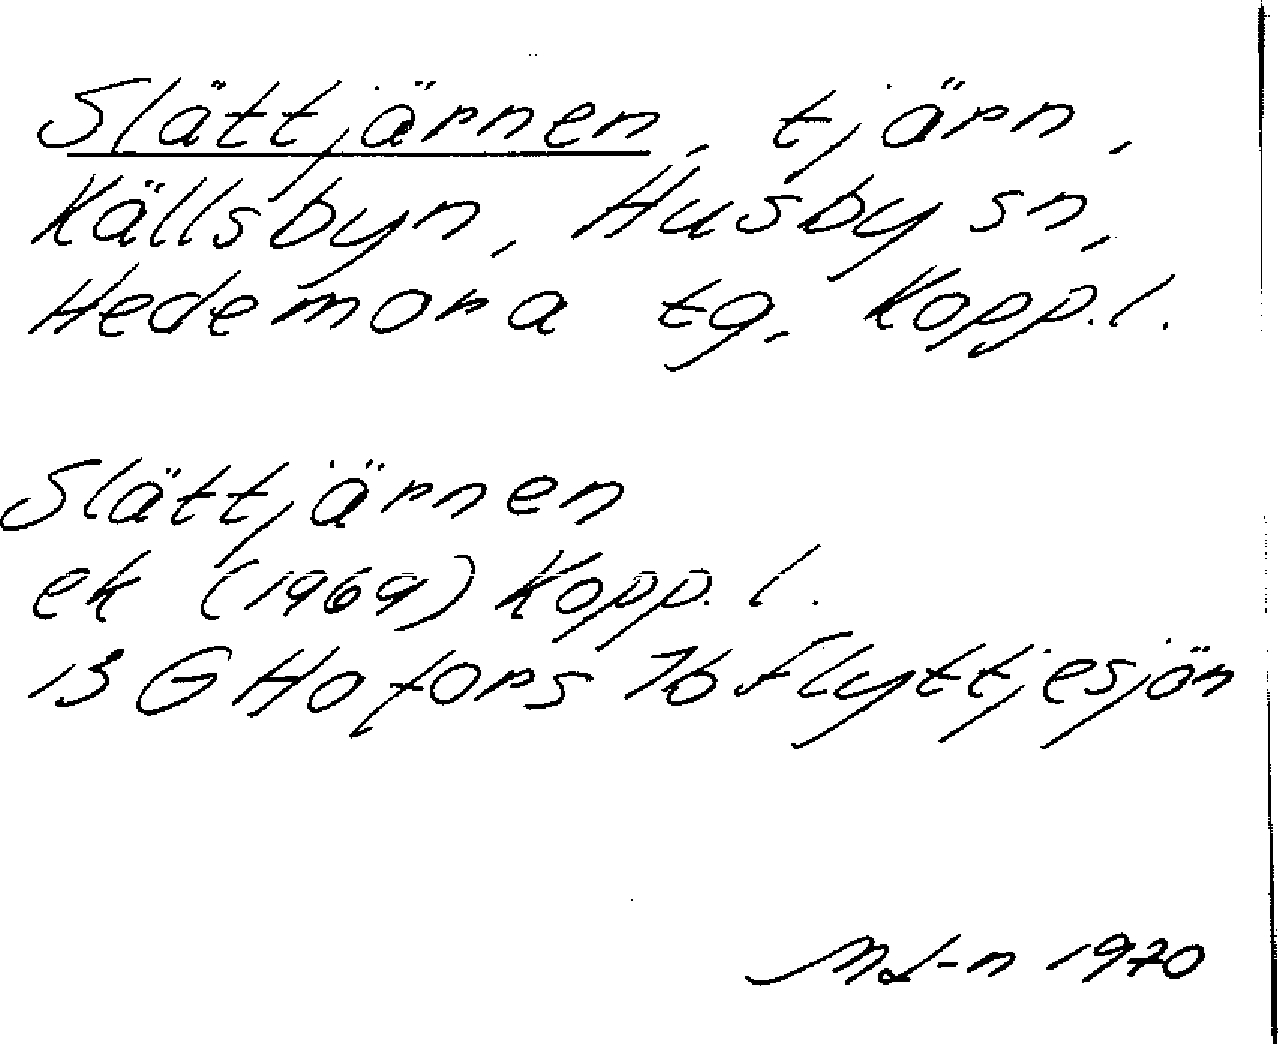 Slättjärnen, tjärn,
Källsbyn, Husby sn,
Hedemora tg, Kopp.l.
Slättjärnen
ek (1969) Kopp.l.
13 G Hofors 7b Flyttjesjön
1970